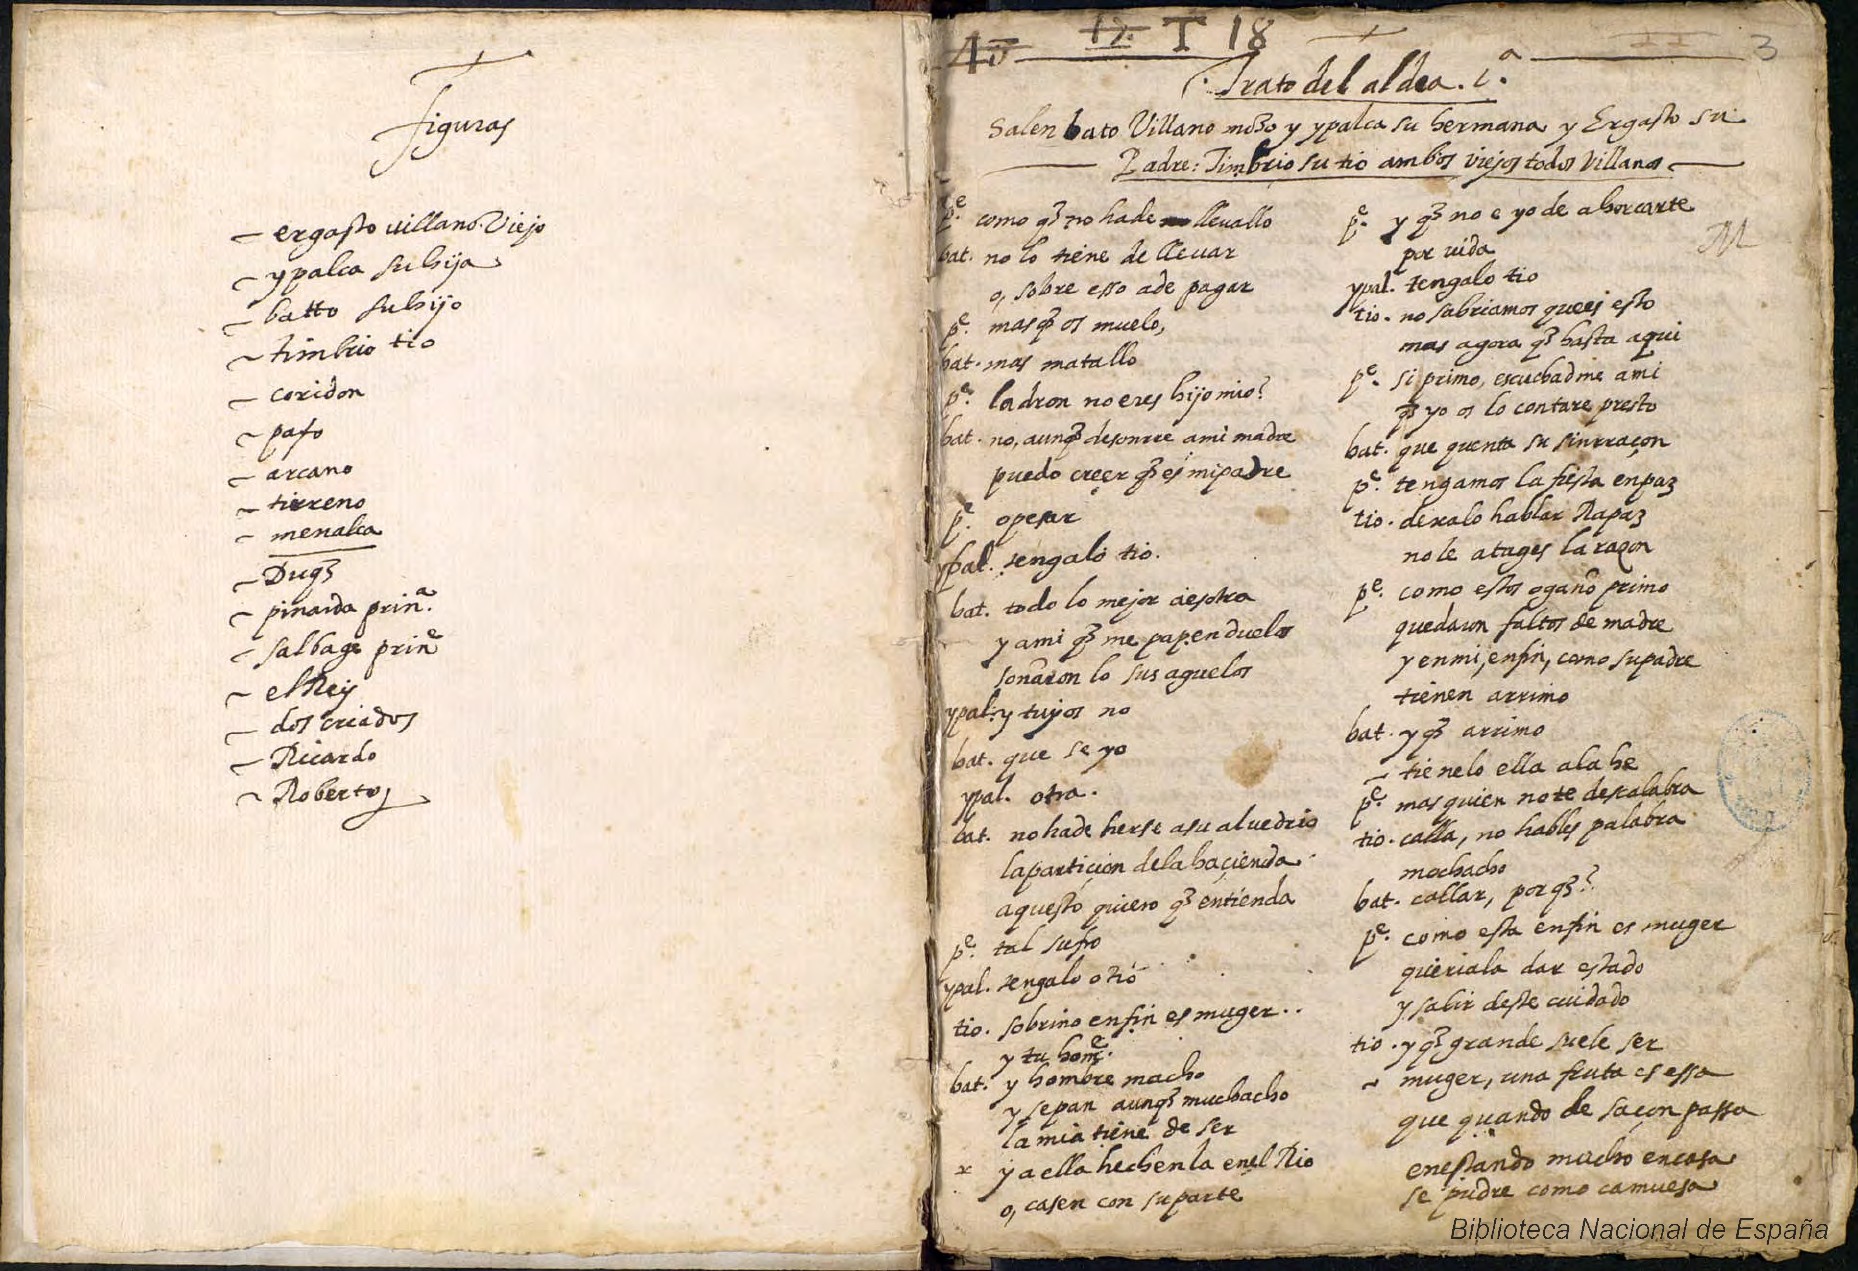 figuras
– ergasto villano Viejo
– ypalca su hija
– batto su hijo
– timbrio tio
– coridon
– pafo
– arcano
– tirreno
– menalca
– Duqȝ
– pinarda prinª.
– salbage prinᵉ
– el Rey
– dos criados
– Ricardo
– Roberto
T 18
3
Trato del aldea. 1.ª
Salen bato Villano moço y ypalca su hermana y Ergasto su
Padre: Timbrio su tio ambos viejos todos Villanos
pᵉ. como qȝ no hade llevallo
bat. no lo tiene de llevar
o, sobre esso a de pagar
pᵉ. mas qȝ os muelo,
bat. mas matallo
pᵉ. ladron no eres hijo mio?
bat. no, aunqȝ desonrre a mi madre
puedo creer qȝ es mi padre
pᵉ. o pesar
ypal. tengalo tio.
bat. todo lo mejor a esotra
y a mi qȝ me papen duelos
soñaron lo sus aguelos
ypal. y tuyos no
bat. que se yo
ypal. otra.
bat. no hade herse a su alvedrio
la particion de la haçienda
aquesto quiero qȝ entienda
pᵉ. tal sufro
ypal. tengalo o tio
tio. sobrino enfin es muger..
y tu homᵉ.
bat. y hombre macho
y sepan aunqȝ muchacho
la mia tiene de ser
y a ella hechenla enel Rio
o, casen con su parte
pᵉ. y qȝ no e yo de ahorcarte
por vida
M
ypal. tengalo tio
tio. no sabriamos que es esto
mas agora qȝ hasta aqui
pᵉ. si primo, escuchadme a mi
qȝ yo os lo contare presto
bat. que quenta su sinrraçon
pᵉ. tengamos la fiesta en paz
tio. dexalo hablar Rapaz
no le atages la raçon
pᵉ. como estos ogaño primo
quedaron faltos de madre
y en mi, enfin, como su padre
tienen arrimo
bat. y qȝ arrimo
– tienelo ella a la he
pᵉ. mas quien no te descalabra
tio. calla, no hables palabra
mochacho
bat. callar, por qȝ?
pᵉ. como esta enfin es muger
queriala dar estado
y salir deste cuidado
tio. y qȝ grande suele ser
– muger, una fruta es essa
que quando de saçon passa
en estando mucho en casa
se pudre como camuesa
Biblioteca Nacional de España